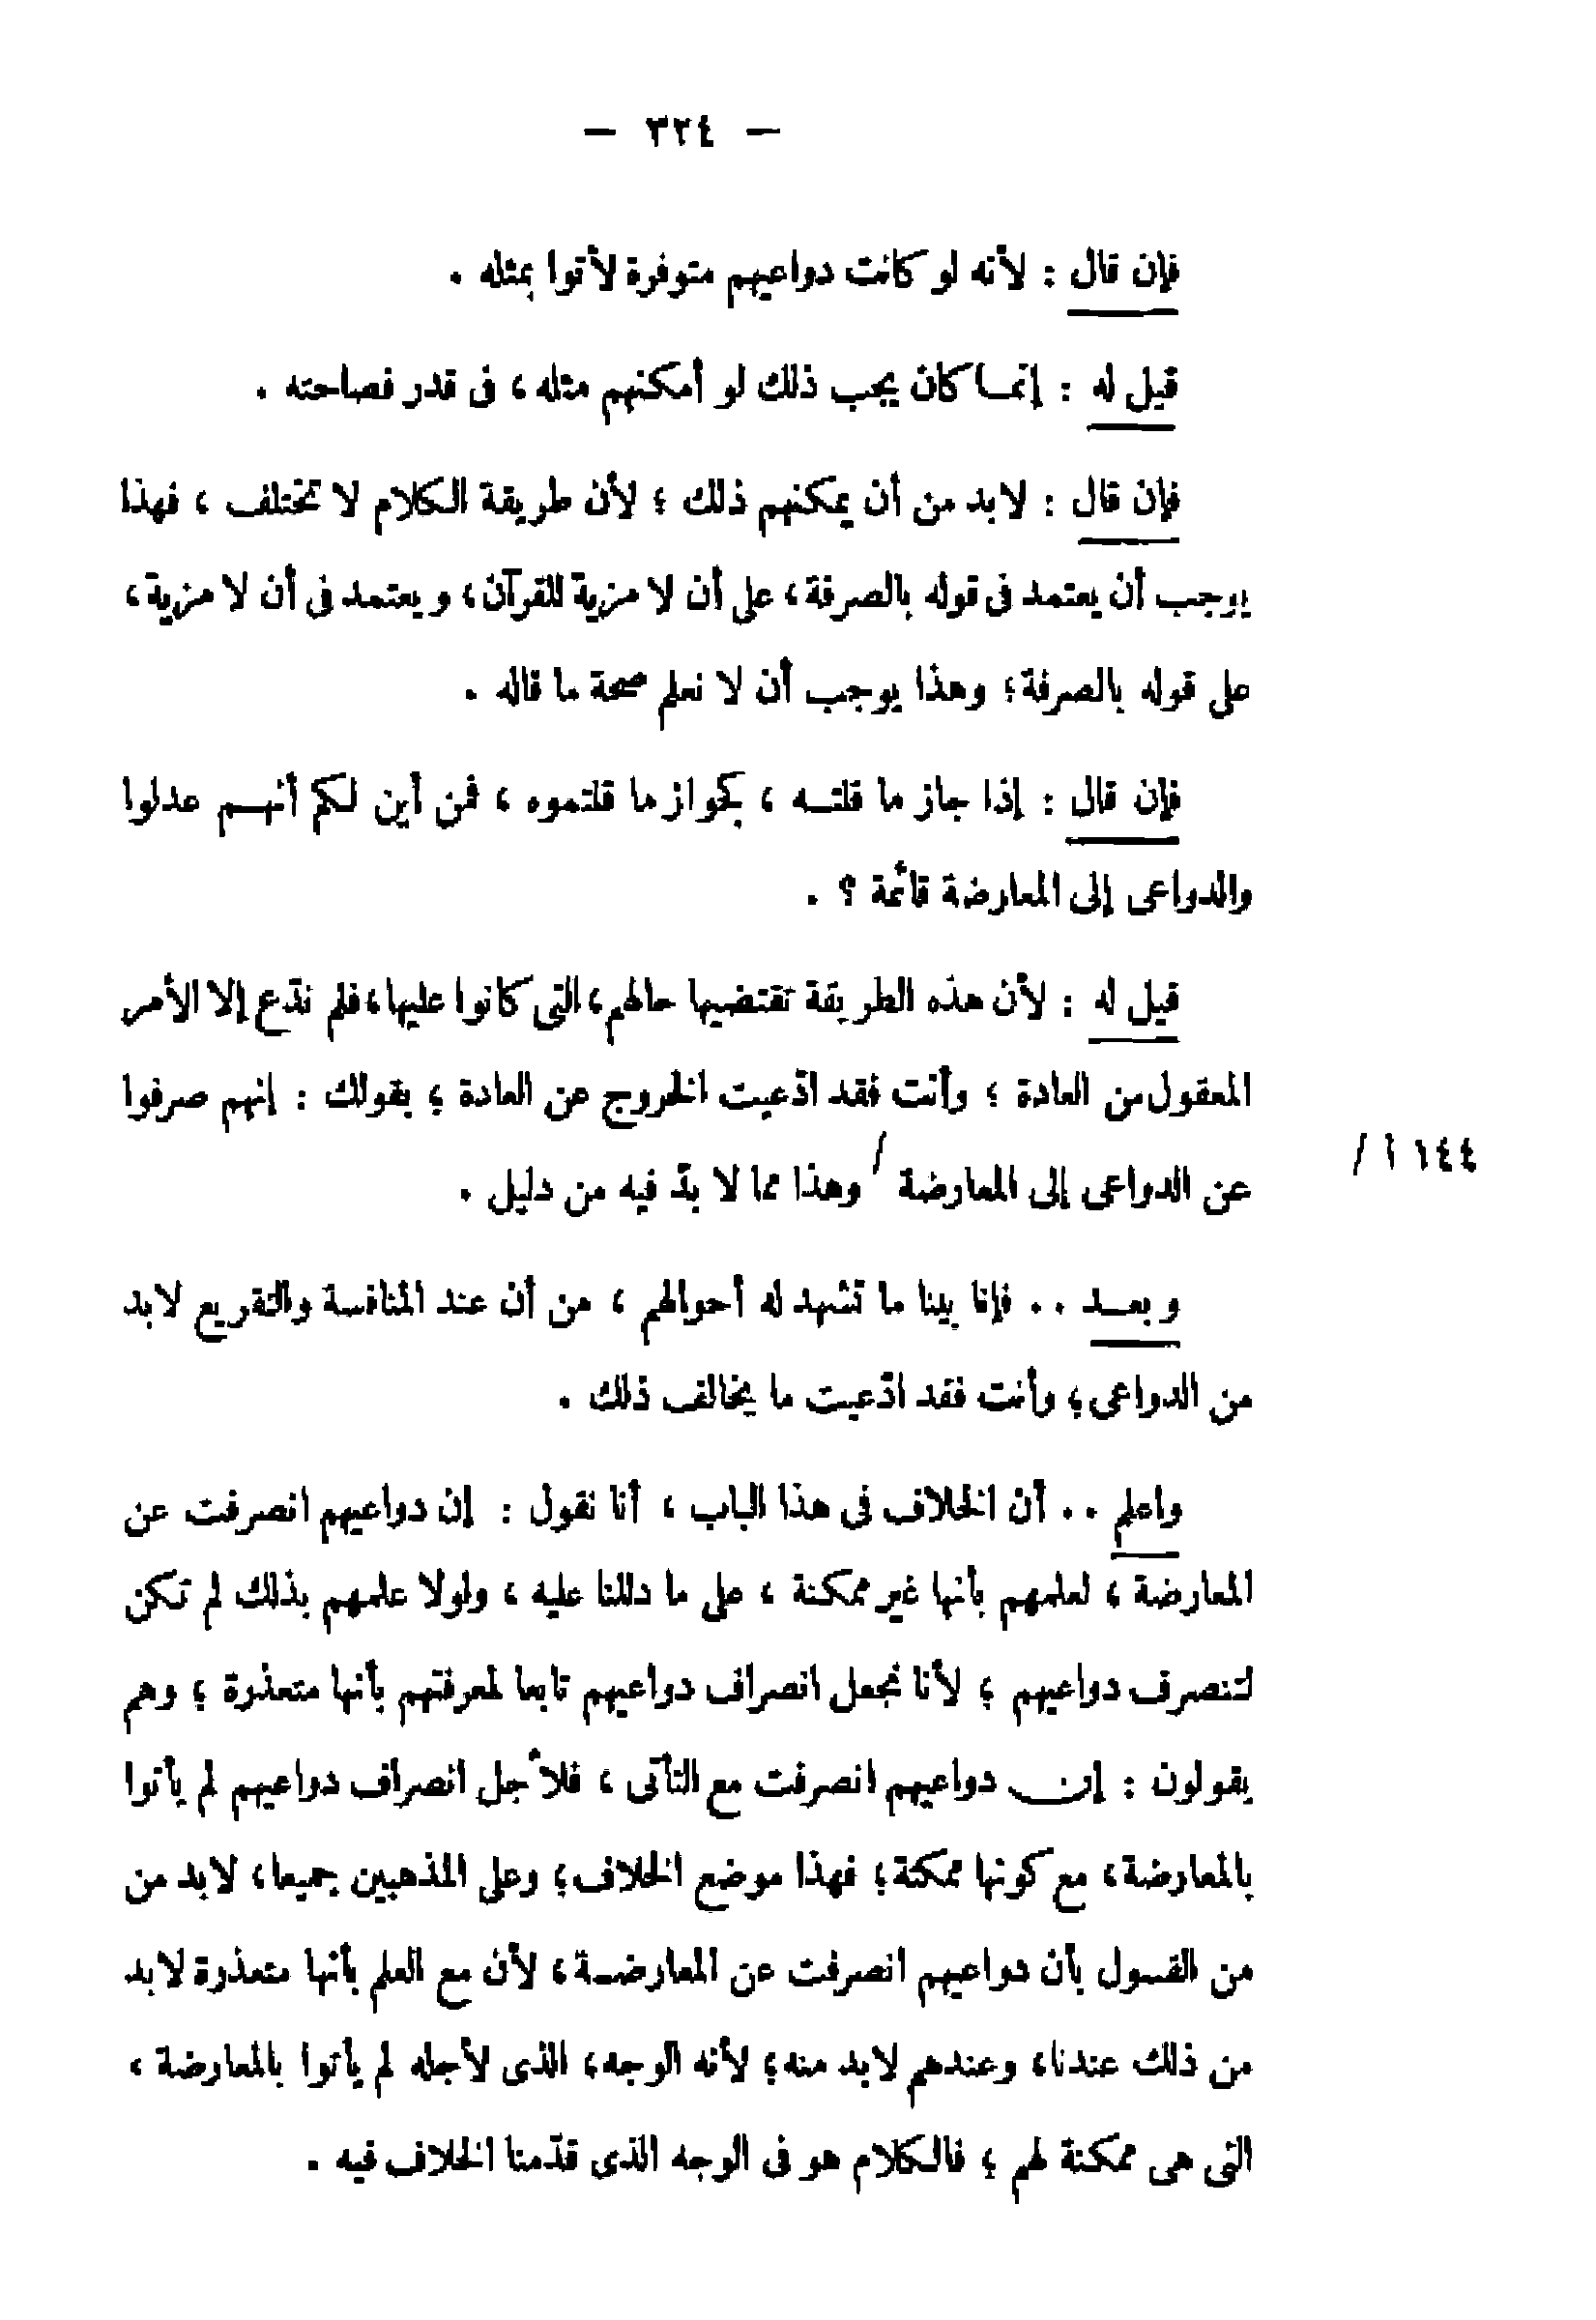 — ٣٢٤ —
فإن قال : لأنه لو كانت دواعيهم متوفرة لأتوا بمثله .
قيل له : إنمـا كان يجب ذلك لو أمكنهم مثله ، فى قدر فصاحته .
فإن قال : لابد من أن يمكنهم ذلك ؛ لأن طريقة الكلام لا تختلف ، فهذا
يوجب أن يعتمد فى قوله بالصرفة ، على أن لا مزية للقرآن ، ويعتمد فى أن لا مزية ،
على قوله بالصرفة ؛ وهذا يوجب أن لا نعلم صحة ما قاله .
فإن قال : إذا جاز ما قلتـه ، كجواز ما قلتموه ، فمن أين لكم أنهـم عدلوا
والدواعى إلى المعارضة قائمة ؟ .
قيل له : لأن هذه الطريقة تقتضيها حالهم ، التى كانوا عليها ، فلم ندّع إلا الأمر
المعقول من العادة ؛ وأنت فقد ادّعيت الخروج عن العادة ؛ بقولك : إنهم صرفوا
عن الدواعى إلى المعارضة / وهذا مما لا بدّ فيه من دليل .
١٤٤ ا /
وبعـد .. فإنا بينا ما تشهد له أحوالهم ، من أن عند المنافسة والتقريع لابد
من الدواعى ؛ وأنت فقد ادّعيت ما يخالف ذلك .
واعلم .. أن الخلاف فى هذا الباب ، أنا نقول : إن دواعيهم انصرفت عن
المعارضة ، لعلمهم بأنها غير ممكنة ، على ما دللنا عليه ، ولولا علمهم بذلك لم تكن
لتنصرف دواعيهم ؛ لأنا نجعل انصراف دواعيهم تابعا لمعرفتهم بأنها متعذرة ؛ وهم
يقولون : إن دواعيهم انصرفت مع التأتى ، فلأجل انصراف دواعيهم لم يأتوا
بالمعارضة ، مع كونها ممكنة ؛ فهذا موضع الخلاف ؛ وعلى المذهبين جميعا ، لابد من
من القـول بأن دواعيهم انصرفت عن المعارضـة ، لأن مع العلم بأنها متعذرة لابد
من ذلك عندنا ، وعندهم لابد منه ؛ لأنه الوجه ، الذى لأجله لم يأتوا بالمعارضة ،
التى هى ممكنة لهم ؛ فالكلام هو فى الوجه الذى قدّمنا الخلاف فيه .